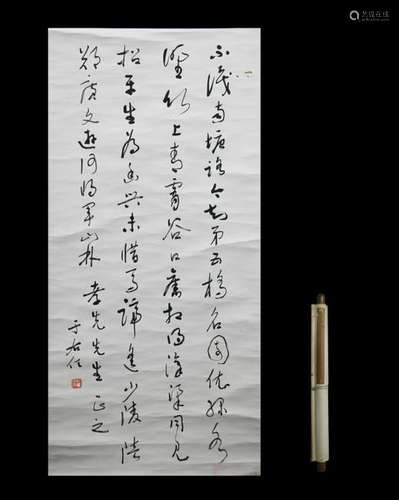 不識南塘路今知第五橋名園依綠水
野竹上青霄谷口舊相得濠梁同見
招平生為幽興未惜馬蹄遙少陵陪
鄭廣文遊何將軍山林 孝先先生正之
于右任